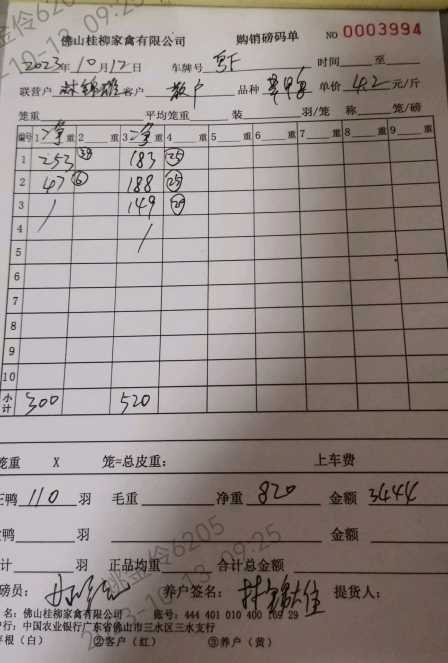 佛山桂柳家禽有限公司 购销磅码单 NO 0003994
2023年10月12日 车牌号 时间 至
联营户 客户 散户 品种 单价 4.2 元/斤
笼重 平均笼重 装 羽/笼 称 笼/磅
编号 1 重 2 重 3 重 4 重 5 重 6 重 7 重 8 重 9 重
1 253 183 25
2 47 6 188 25
3 149
4
5
6
7
8
9
10
小计 300 520
笼重 X 笼=总皮重: 上车费
正鸭 110 羽 毛重 净重 820 金额 3444
鸭 羽 金额
计 羽 正品均重 合计总金额
磅员: 养户签名: 提货人:
名: 佛山桂柳家禽有限公司 账号: 444 401 010 400 169 29
户行: 中国农业银行广东省佛山市三水区三水支行
存根(白) ②客户(红) ③养户(黄)